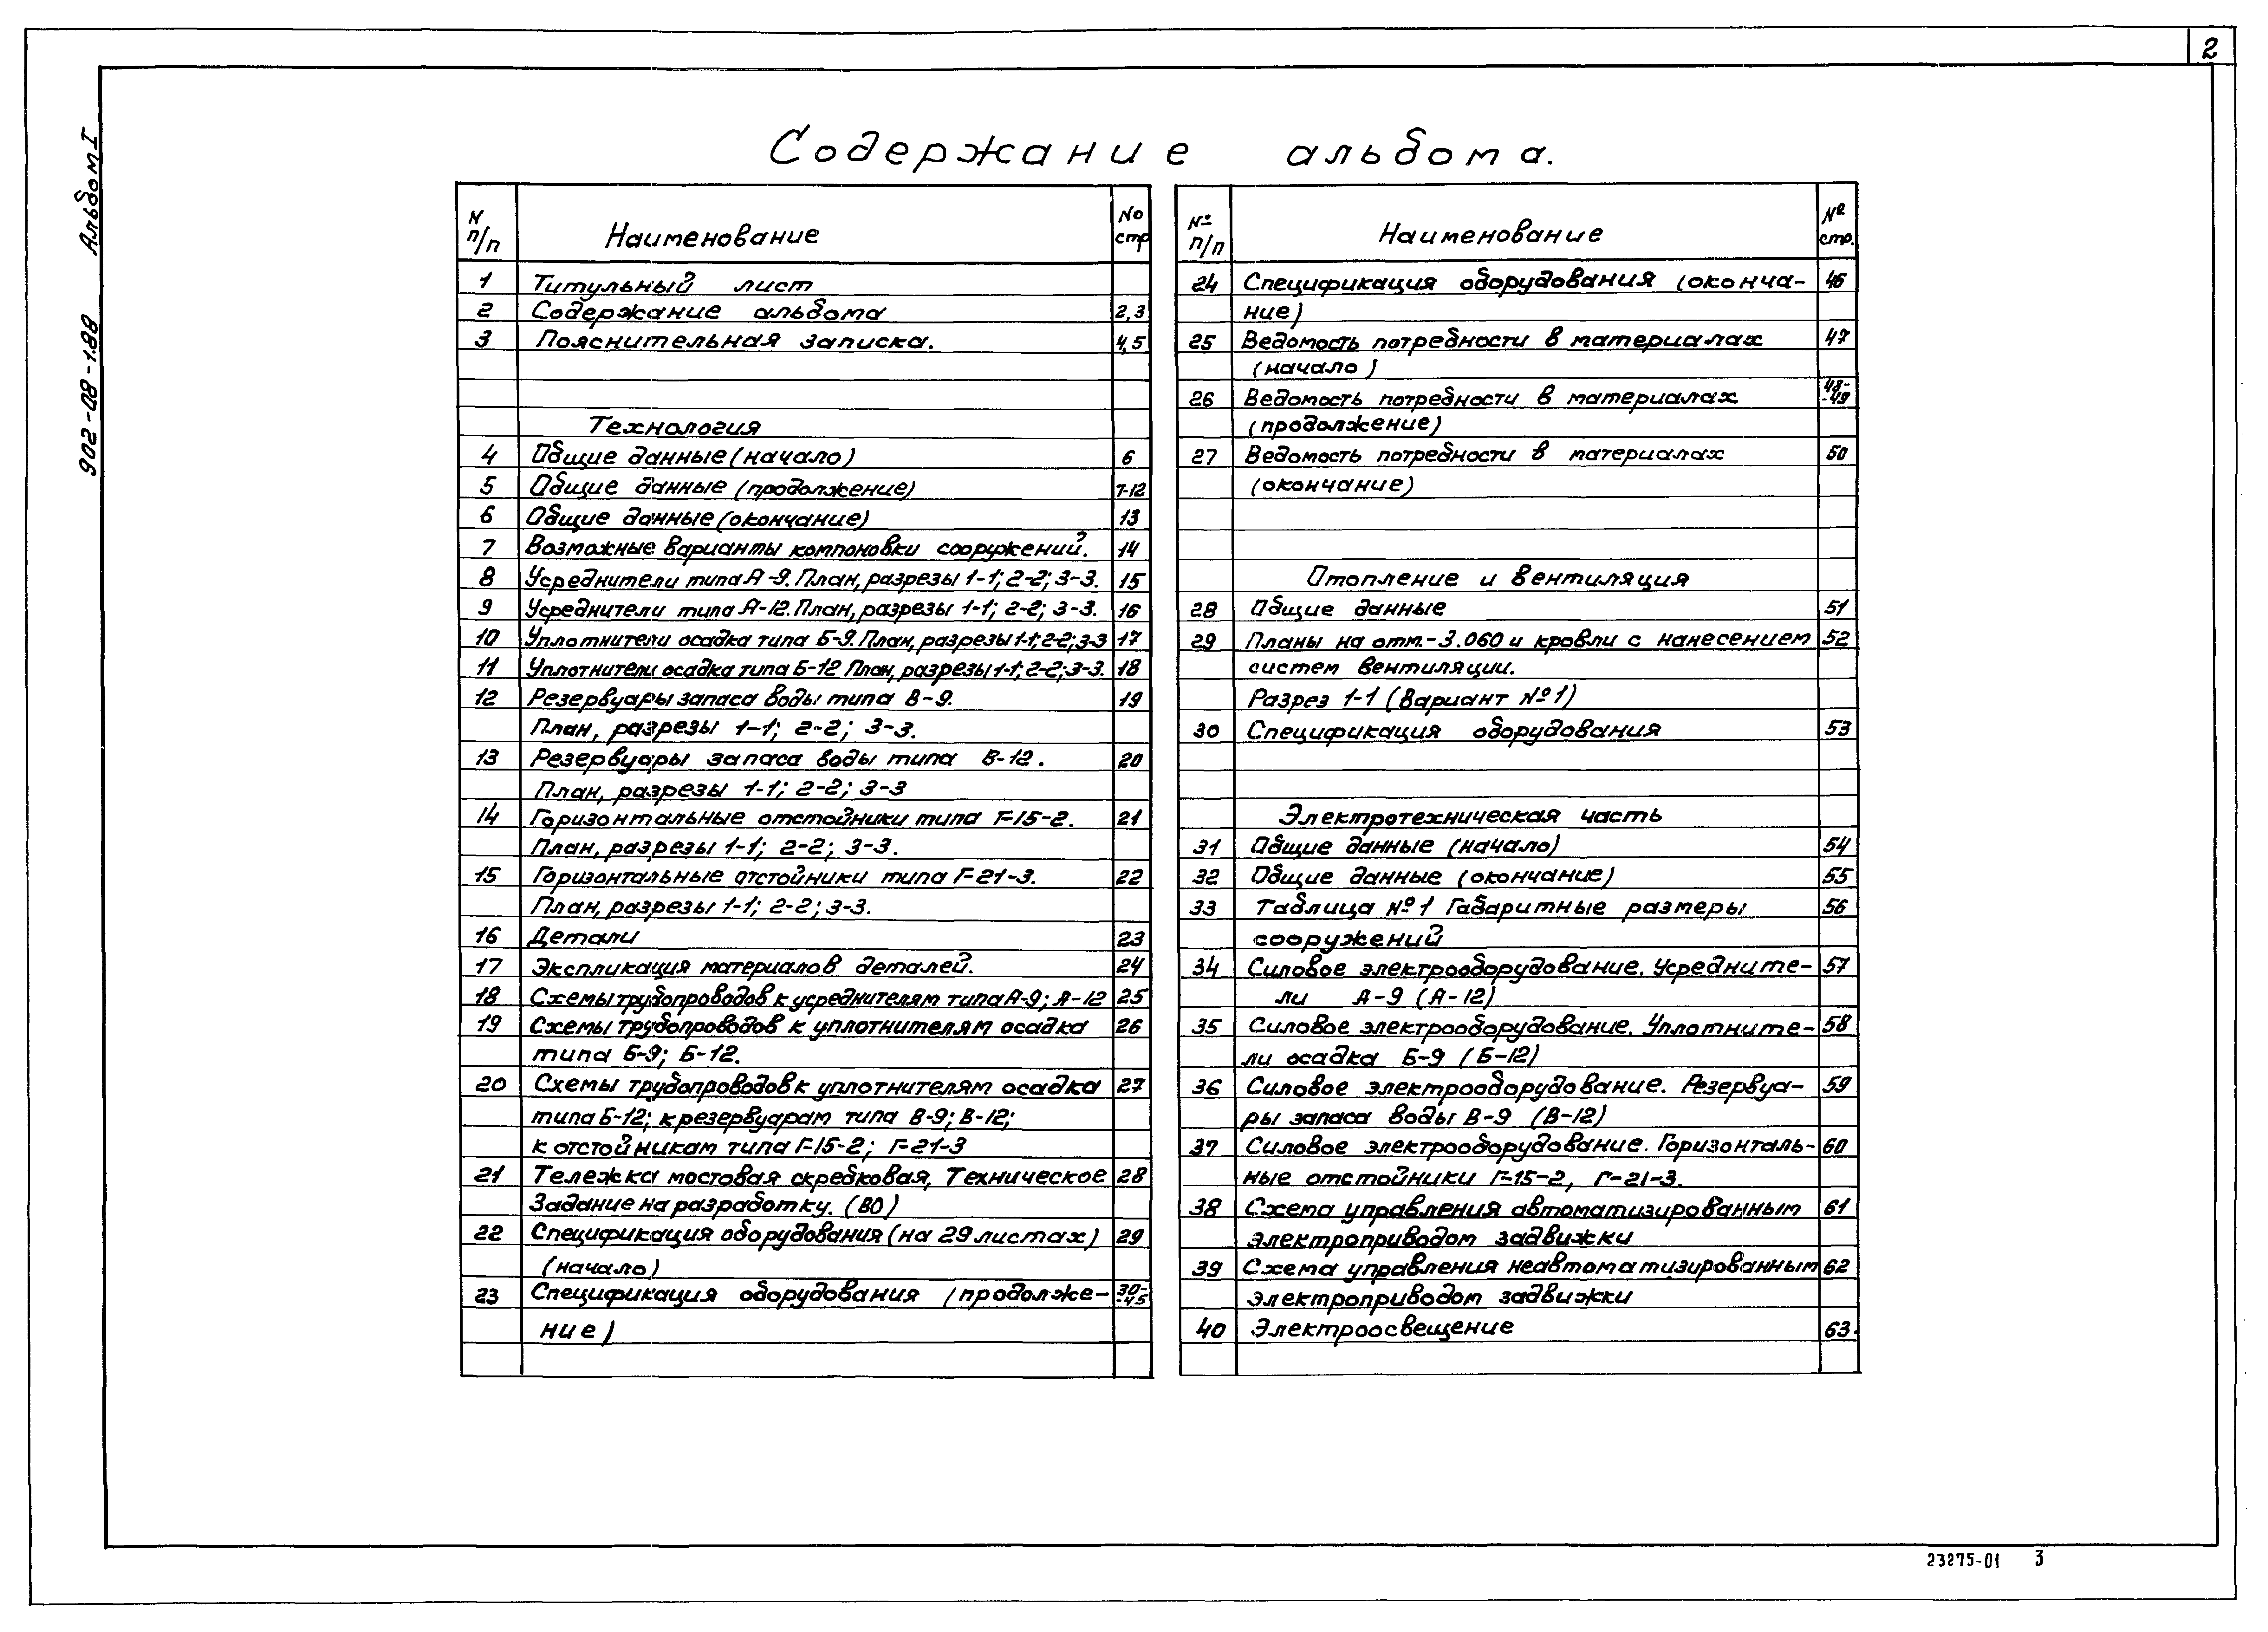 2
902-08-1.88 Альбом I
Содержание альбома.
N п/п Наименование No стр
1 Титульный лист
2 Содержание альбома 2,3
3 Пояснительная записка. 4,5
Технология
4 Общие данные (начало) 6
5 Общие данные (продолжение) 7-12
6 Общие данные (окончание) 13
7 Возможные варианты компоновки сооружений. 14
8 Усреднители типа А-9. План, разрезы 1-1; 2-2; 3-3. 15
9 Усреднители типа А-12. План, разрезы 1-1; 2-2; 3-3. 16
10 Уплотнители осадка типа Б-9. План, разрезы 1-1; 2-2; 3-3 17
11 Уплотнители осадка типа Б-12 План, разрезы 1-1; 2-2; 3-3. 18
12 Резервуары запаса воды типа В-9. 19
План, разрезы 1-1; 2-2; 3-3.
13 Резервуары запаса воды типа В-12. 20
План, разрезы 1-1; 2-2; 3-3
14 Горизонтальные отстойники типа Г-15-2. 21
План, разрезы 1-1; 2-2; 3-3.
15 Горизонтальные отстойники типа Г-21-3. 22
План, разрезы 1-1; 2-2; 3-3.
16 Детали 23
17 Экспликация материалов деталей. 24
18 Схемы трубопроводов к усреднителям типа А-9; А-12 25
19 Схемы трубопроводов к уплотнителям осадка 26
типа Б-9; Б-12.
20 Схемы трубопроводов к уплотнителям осадка 27
типа Б-12; к резервуарам типа В-9; В-12;
к отстойникам типа Г-15-2; Г-21-3
21 Тележка мостовая скребковая, Техническое 28
Задание на разработку. (ВО)
22 Спецификация оборудования (на 29 листах) 29
(начало)
23 Спецификация оборудования (продолже- 30-
-45
ние)
№ п/п Наименование № стр.
24 Спецификация оборудования (оконча- 46
ние)
25 Ведомость потребности в материалах 47
(начало)
26 Ведомость потребности в материалах 48-
-49
(продолжение)
27 Ведомость потребности в материалах 50
(окончание)
Отопление и вентиляция
28 Общие данные 51
29 Планы на отм.-3.060 и кровли с нанесением 52
систем вентиляции.
Разрез 1-1 (Вариант №1)
30 Спецификация оборудования 53
Электротехническая часть
31 Общие данные (начало) 54
32 Общие данные (окончание) 55
33 Таблица №1 Габаритные размеры 56
сооружений
34 Силовое электрооборудование. Усредните- 57
ли А-9 (А-12)
35 Силовое электрооборудование. Уплотните- 58
ли осадка Б-9 (Б-12)
36 Силовое электрооборудование. Резервуа- 59
ры запаса воды В-9 (В-12)
37 Силовое электрооборудование. Горизонталь- 60
ные отстойники Г-15-2, Г-21-3.
38 Схема управления автоматизированным 61
электроприводом задвижки
39 Схема управления неавтоматизированным 62
электроприводом задвижки
40 Электроосвещение 63.
23275-01 3